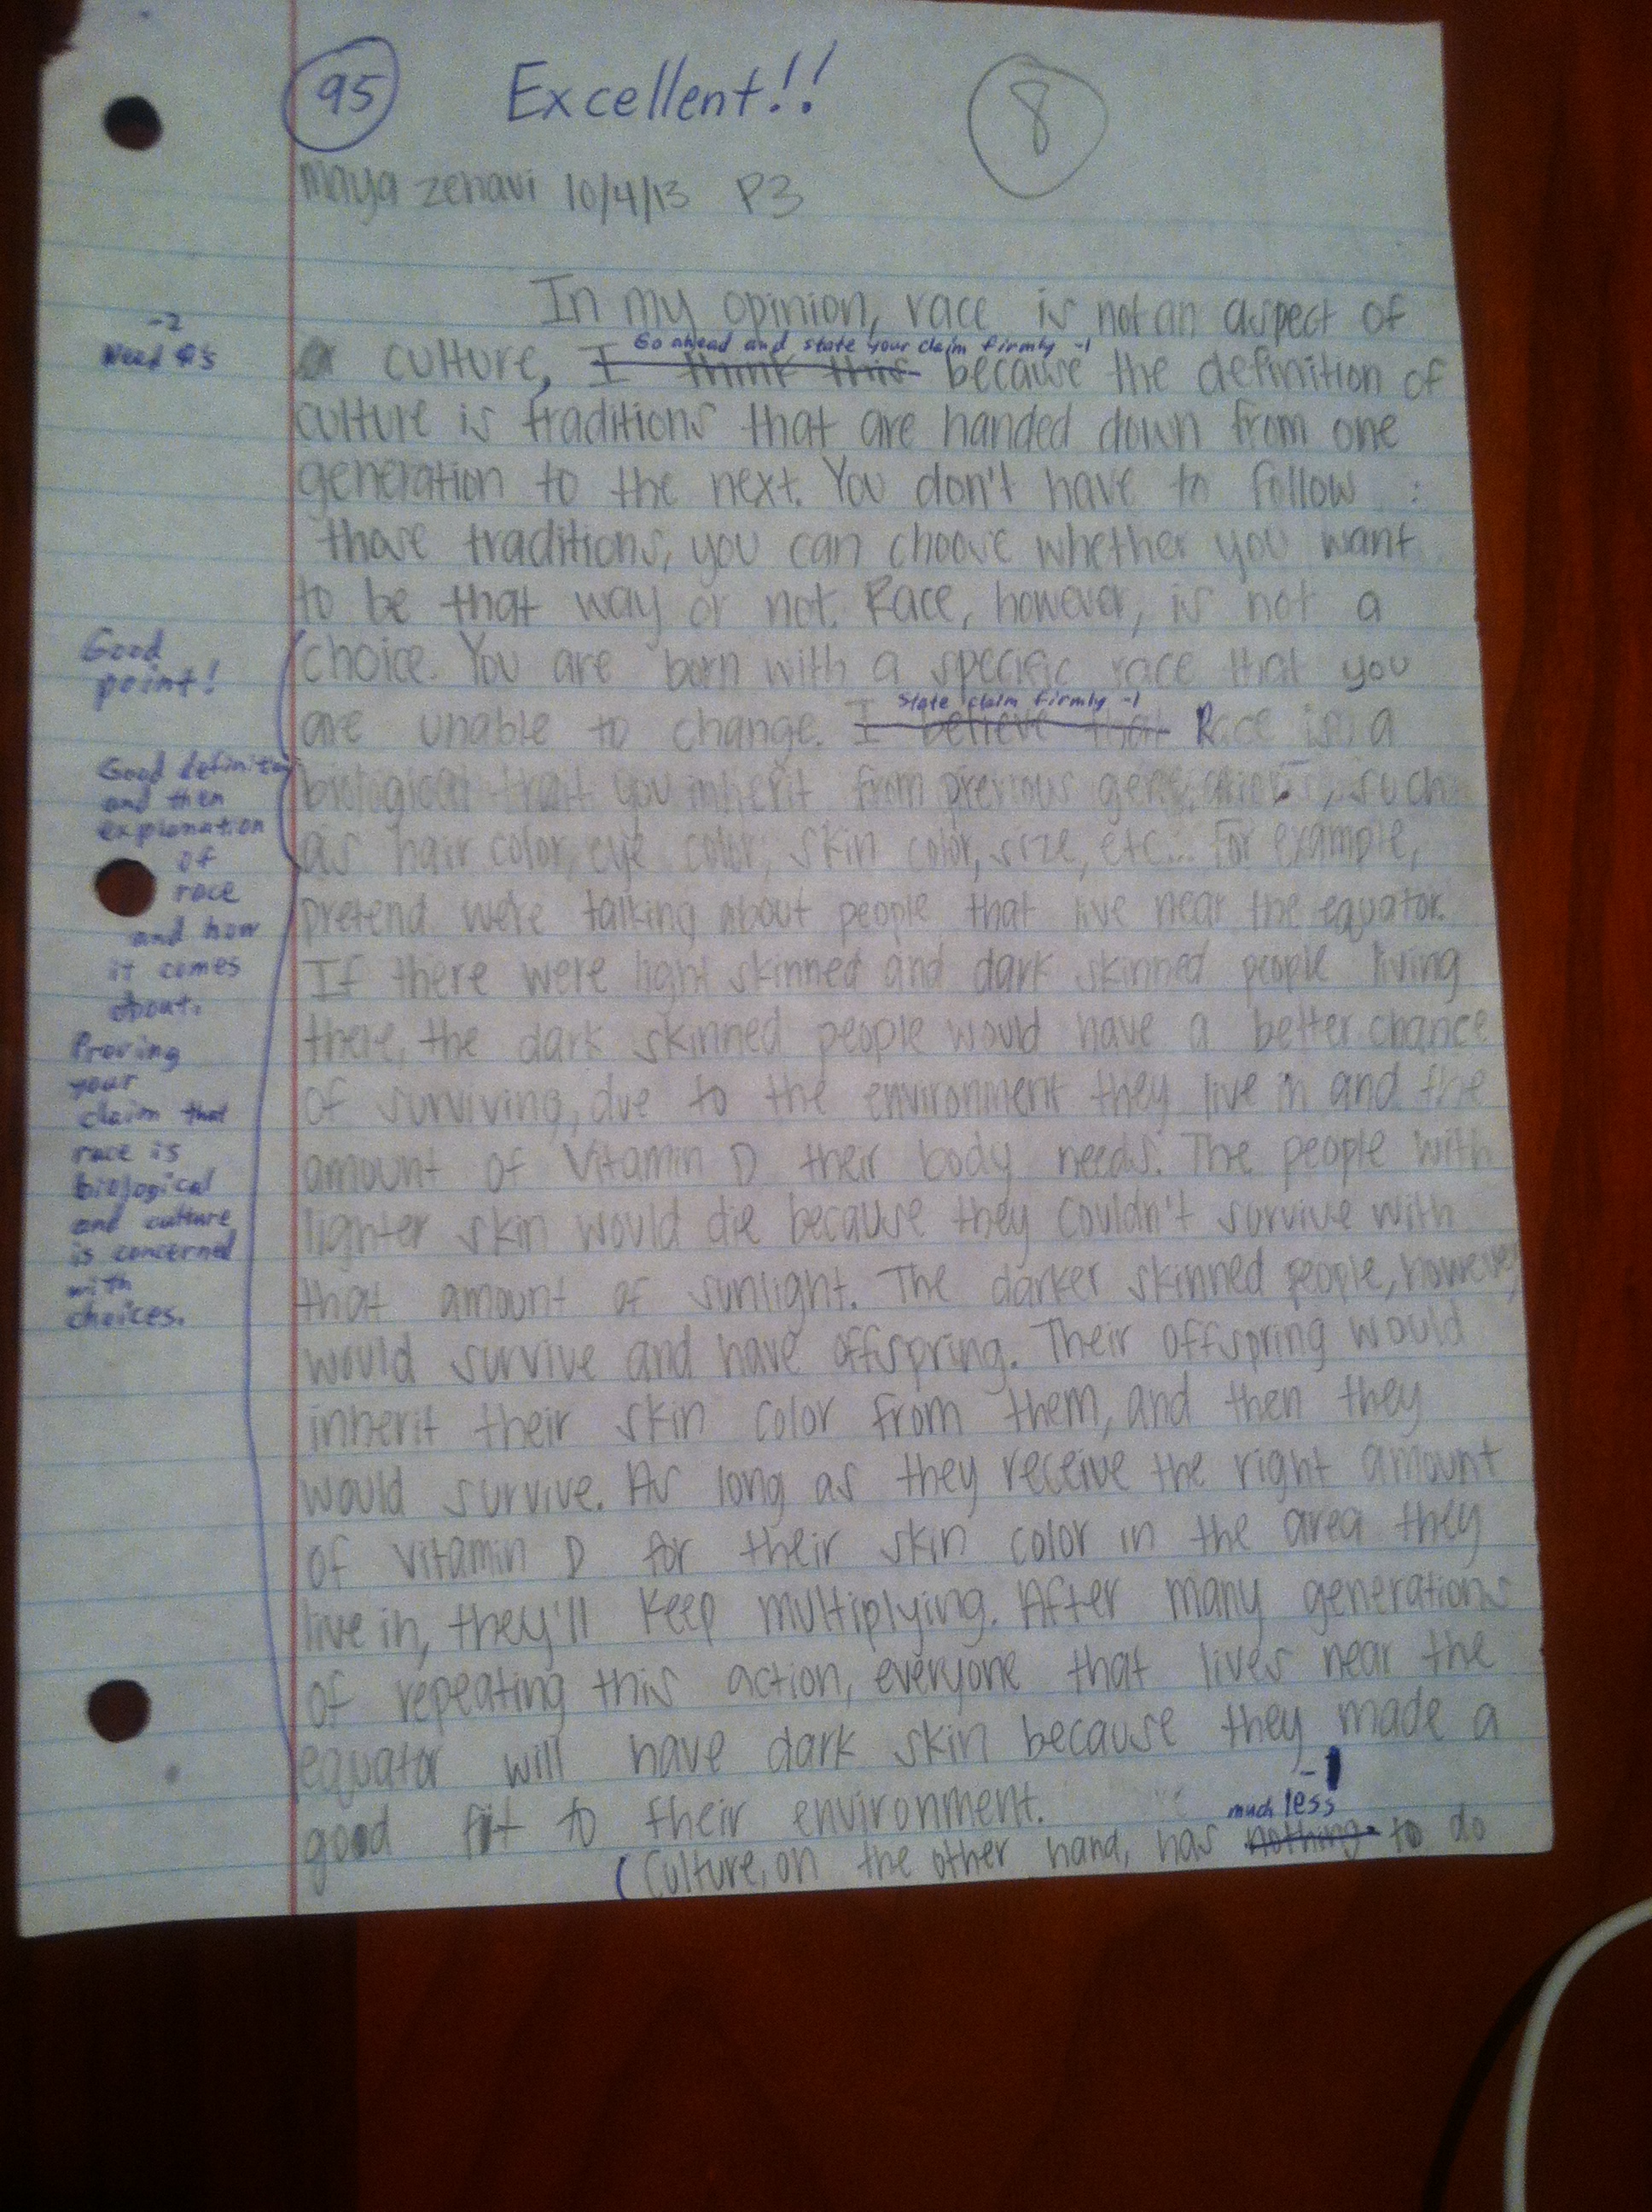 95 Excellent!! 8
Maya Zehavi 10/4/13 P3
In my opinion, race is not an aspect of
-2
Need #'s
Go ahead and state your claim firmly -1
culture, I think this because the definition of
culture is traditions that are handed down from one
generation to the next. You don't have to follow
those traditions, you can choose whether you want
to be that way or not. Race, however, is not a
Good
point!
choice. You are born with a specific race that you
State claim firmly -1
are unable to change. I believe that Race is a
Good definition
and then
explanation
of
race
and how
it comes
about.
biological trait you inherit from previous generations, such
as hair color, eye color, skin color, size, etc... For example,
pretend we're talking about people that live near the equator.
If there were light skinned and dark skinned people living
there, the dark skinned people would have a better chance
Proving
your
claim that
race is
biological
and culture
is concerned
with
choices.
of surviving, due to the environment they live in and the
amount of Vitamin D their body needs. The people with
lighter skin would die because they couldn't survive with
that amount of sunlight. The darker skinned people, however,
would survive and have offspring. Their offspring would
inherit their skin color from them, and then they
would survive. As long as they receive the right amount
of vitamin D for their skin color in the area they
live in, they'll keep multiplying. After many generations
of repeating this action, everyone that lives near the
equator will have dark skin because they made a
good fit to their environment.
-1
much less
(Culture, on the other hand, has nothing to do